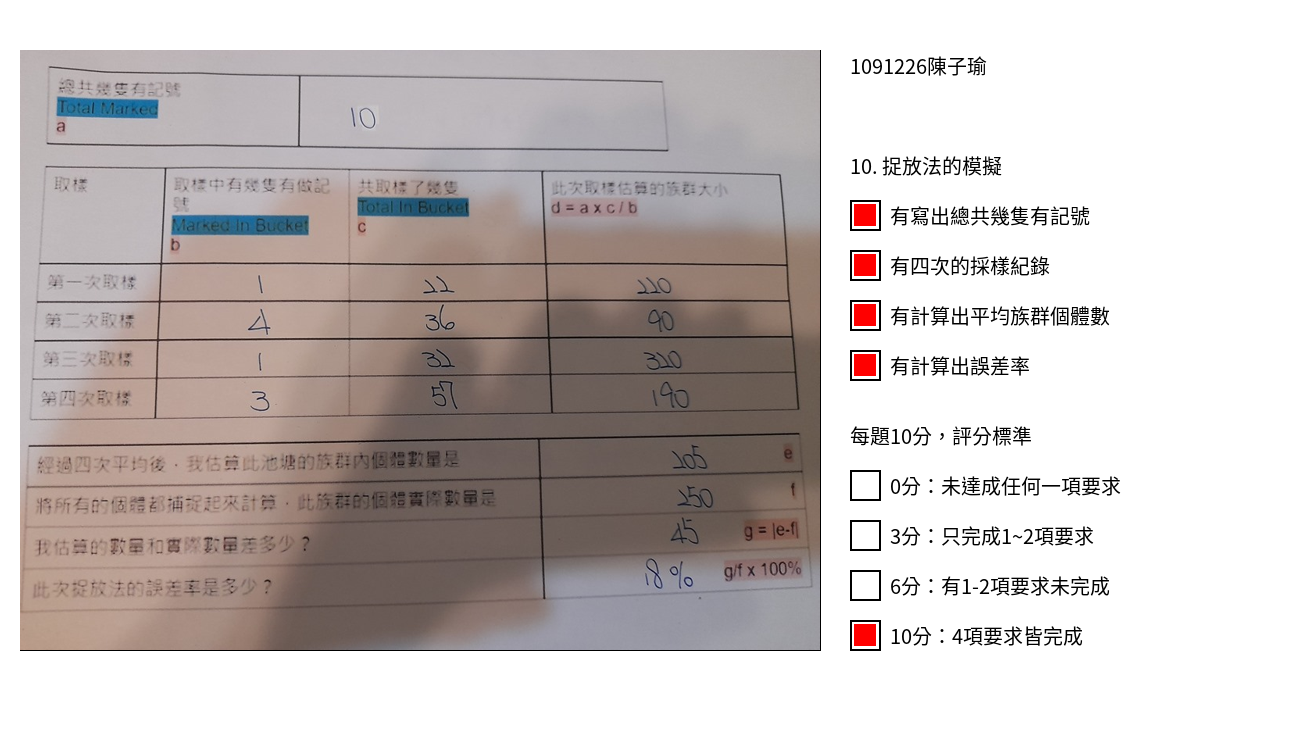 總共幾隻有記號
Total Marked
a
10
取樣
取樣中有幾隻有做記號
Marked In Bucket
b
共取樣了幾隻
Total In Bucket
c
此次取樣估算的族群大小
d = a x c / b
第一次取樣 1 22 220
第二次取樣 4 36 90
第三次取樣 1 32 320
第四次取樣 3 57 190
經過四次平均後，我估算此池塘的族群內個體數量是 205 e
將所有的個體都捕捉起來計算，此族群的個體實際數量是 250 f
我估算的數量和實際數量差多少？ 45 g = |e-f|
此次捉放法的誤差率是多少？ 18% g/f x 100%
1091226陳子瑜
10. 捉放法的模擬
有寫出總共幾隻有記號
有四次的採樣紀錄
有計算出平均族群個體數
有計算出誤差率
每題10分，評分標準
0分：未達成任何一項要求
3分：只完成1~2項要求
6分：有1-2項要求未完成
10分：4項要求皆完成